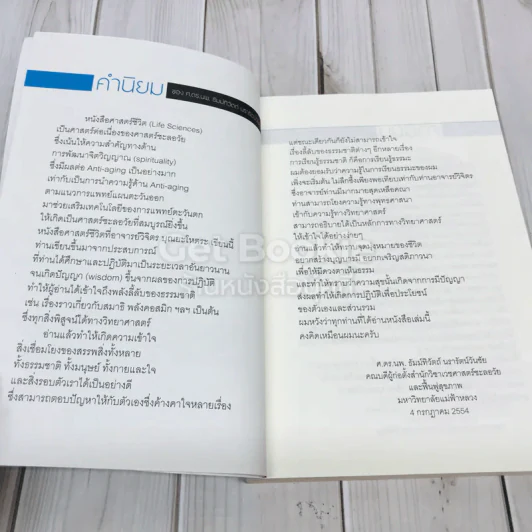 คำนิยม
ของ ศ.ดร.นพ. ธัมม์ทิวัตถ์
หนังสือศาสตร์ชีวิต (Life Sciences)
เป็นศาสตร์ต่อเนื่องของศาสตร์ชะลอวัย
ซึ่งเน้นให้ความสำคัญทางด้าน
การพัฒนาจิตวิญญาณ (spirituality)
ซึ่งมีผลต่อ Anti-aging เป็นอย่างมาก
เท่ากับเป็นการนำความรู้ด้าน Anti-aging
ตามแนวการแพทย์แผนตะวันออก
มาช่วยเสริมเทคโนโลยีของการแพทย์ตะวันตก
ให้เกิดเป็นศาสตร์ชะลอวัยที่สมบูรณ์ยิ่งขึ้น
หนังสือศาสตร์ชีวิตที่อาจารย์วิจิตร บุณยะโหตระ เขียนนี้
ท่านเขียนขึ้นมาจากประสบการณ์
ที่ท่านได้ศึกษาและปฏิบัติมาเป็นระยะเวลาอันยาวนาน
จนเกิดปัญญา (wisdom) ขึ้นจากผลของการปฏิบัติ
ทำให้ผู้อ่านได้เข้าใจถึงพลังลี้ลับของธรรมชาติ
เช่น เรื่องราวเกี่ยวกับสมาธิ พลังคอสมิก ฯลฯ เป็นต้น
ซึ่งทุกสิ่งพิสูจน์ได้ทางวิทยาศาสตร์
อ่านแล้วทำให้เกิดความเข้าใจ
สิ่งเชื่อมโยงของสรรพสิ่งทั้งหลาย
ทั้งธรรมชาติ ทั้งมนุษย์ ทั้งกายและใจ
และสิ่งรอบตัวเราได้เป็นอย่างดี
ซึ่งสามารถตอบปัญหาให้กับตัวเองซึ่งค้างคาใจหลายเรื่อง
แต่ขณะเดียวกันก็ยังไม่สามารถเข้าใจ
เรื่องลี้ลับของธรรมชาติต่างๆ อีกหลายเรื่อง
การเรียนรู้ธรรมชาติ ก็คือการเรียนรู้ธรรมะ
ผมต้องยอมรับว่าความรู้ในการเรียนธรรมะของผม
เพิ่งจะเริ่มต้น ไม่ลึกซึ้งเพียงพอเทียบเท่ากับท่านอาจารย์วิจิตร
ซึ่งอาจารย์ท่านมีมากมายสุดเหลือคณา
ท่านสามารถโยงความรู้ทางพุทธศาสนา
เข้ากับความรู้ทางวิทยาศาสตร์
สามารถอธิบายเป็นหลักการทางวิทยาศาสตร์
ให้เข้าใจได้อย่างง่ายๆ
อ่านแล้วทำให้ทราบจุดมุ่งหมายของชีวิต
อยากสร้างบุญบารมี อยากเจริญสติภาวนา
เพื่อให้มีดวงตาเห็นธรรม
และทำให้ทราบว่าความสุขนั้นเกิดจากการมีปัญญา
ส่งผลทำให้เกิดการปฏิบัติเพื่อประโยชน์
ของตัวเองและส่วนรวม
ผมหวังว่าทุกท่านที่ได้อ่านหนังสือเล่มนี้
คงคิดเหมือนผมนะครับ
ศ.ดร.นพ. ธัมม์ทิวัตถ์ นรารัตน์วันชัย
คณบดีผู้ก่อตั้งสำนักวิชาเวชศาสตร์ชะลอวัย
และฟื้นฟูสุขภาพ
มหาวิทยาลัยแม่ฟ้าหลวง
4 กรกฎาคม 2554